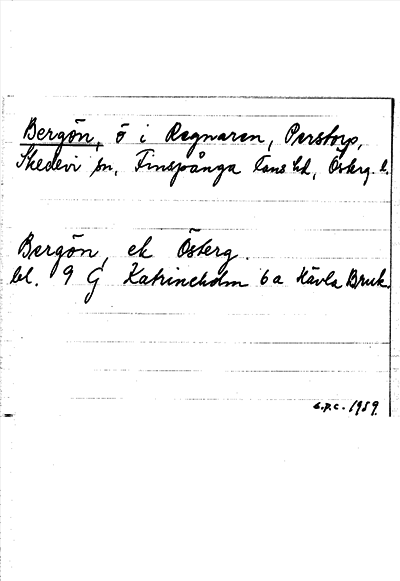 Bergön, ö i Regnaren, Perstorp,
Skedevi sn, Finspånga läns hd, Österg. l.
Bergön, ek Österg.
bl. 9 G Katrineholm 6 a Hävla Bruk
G.P.C. 1959.